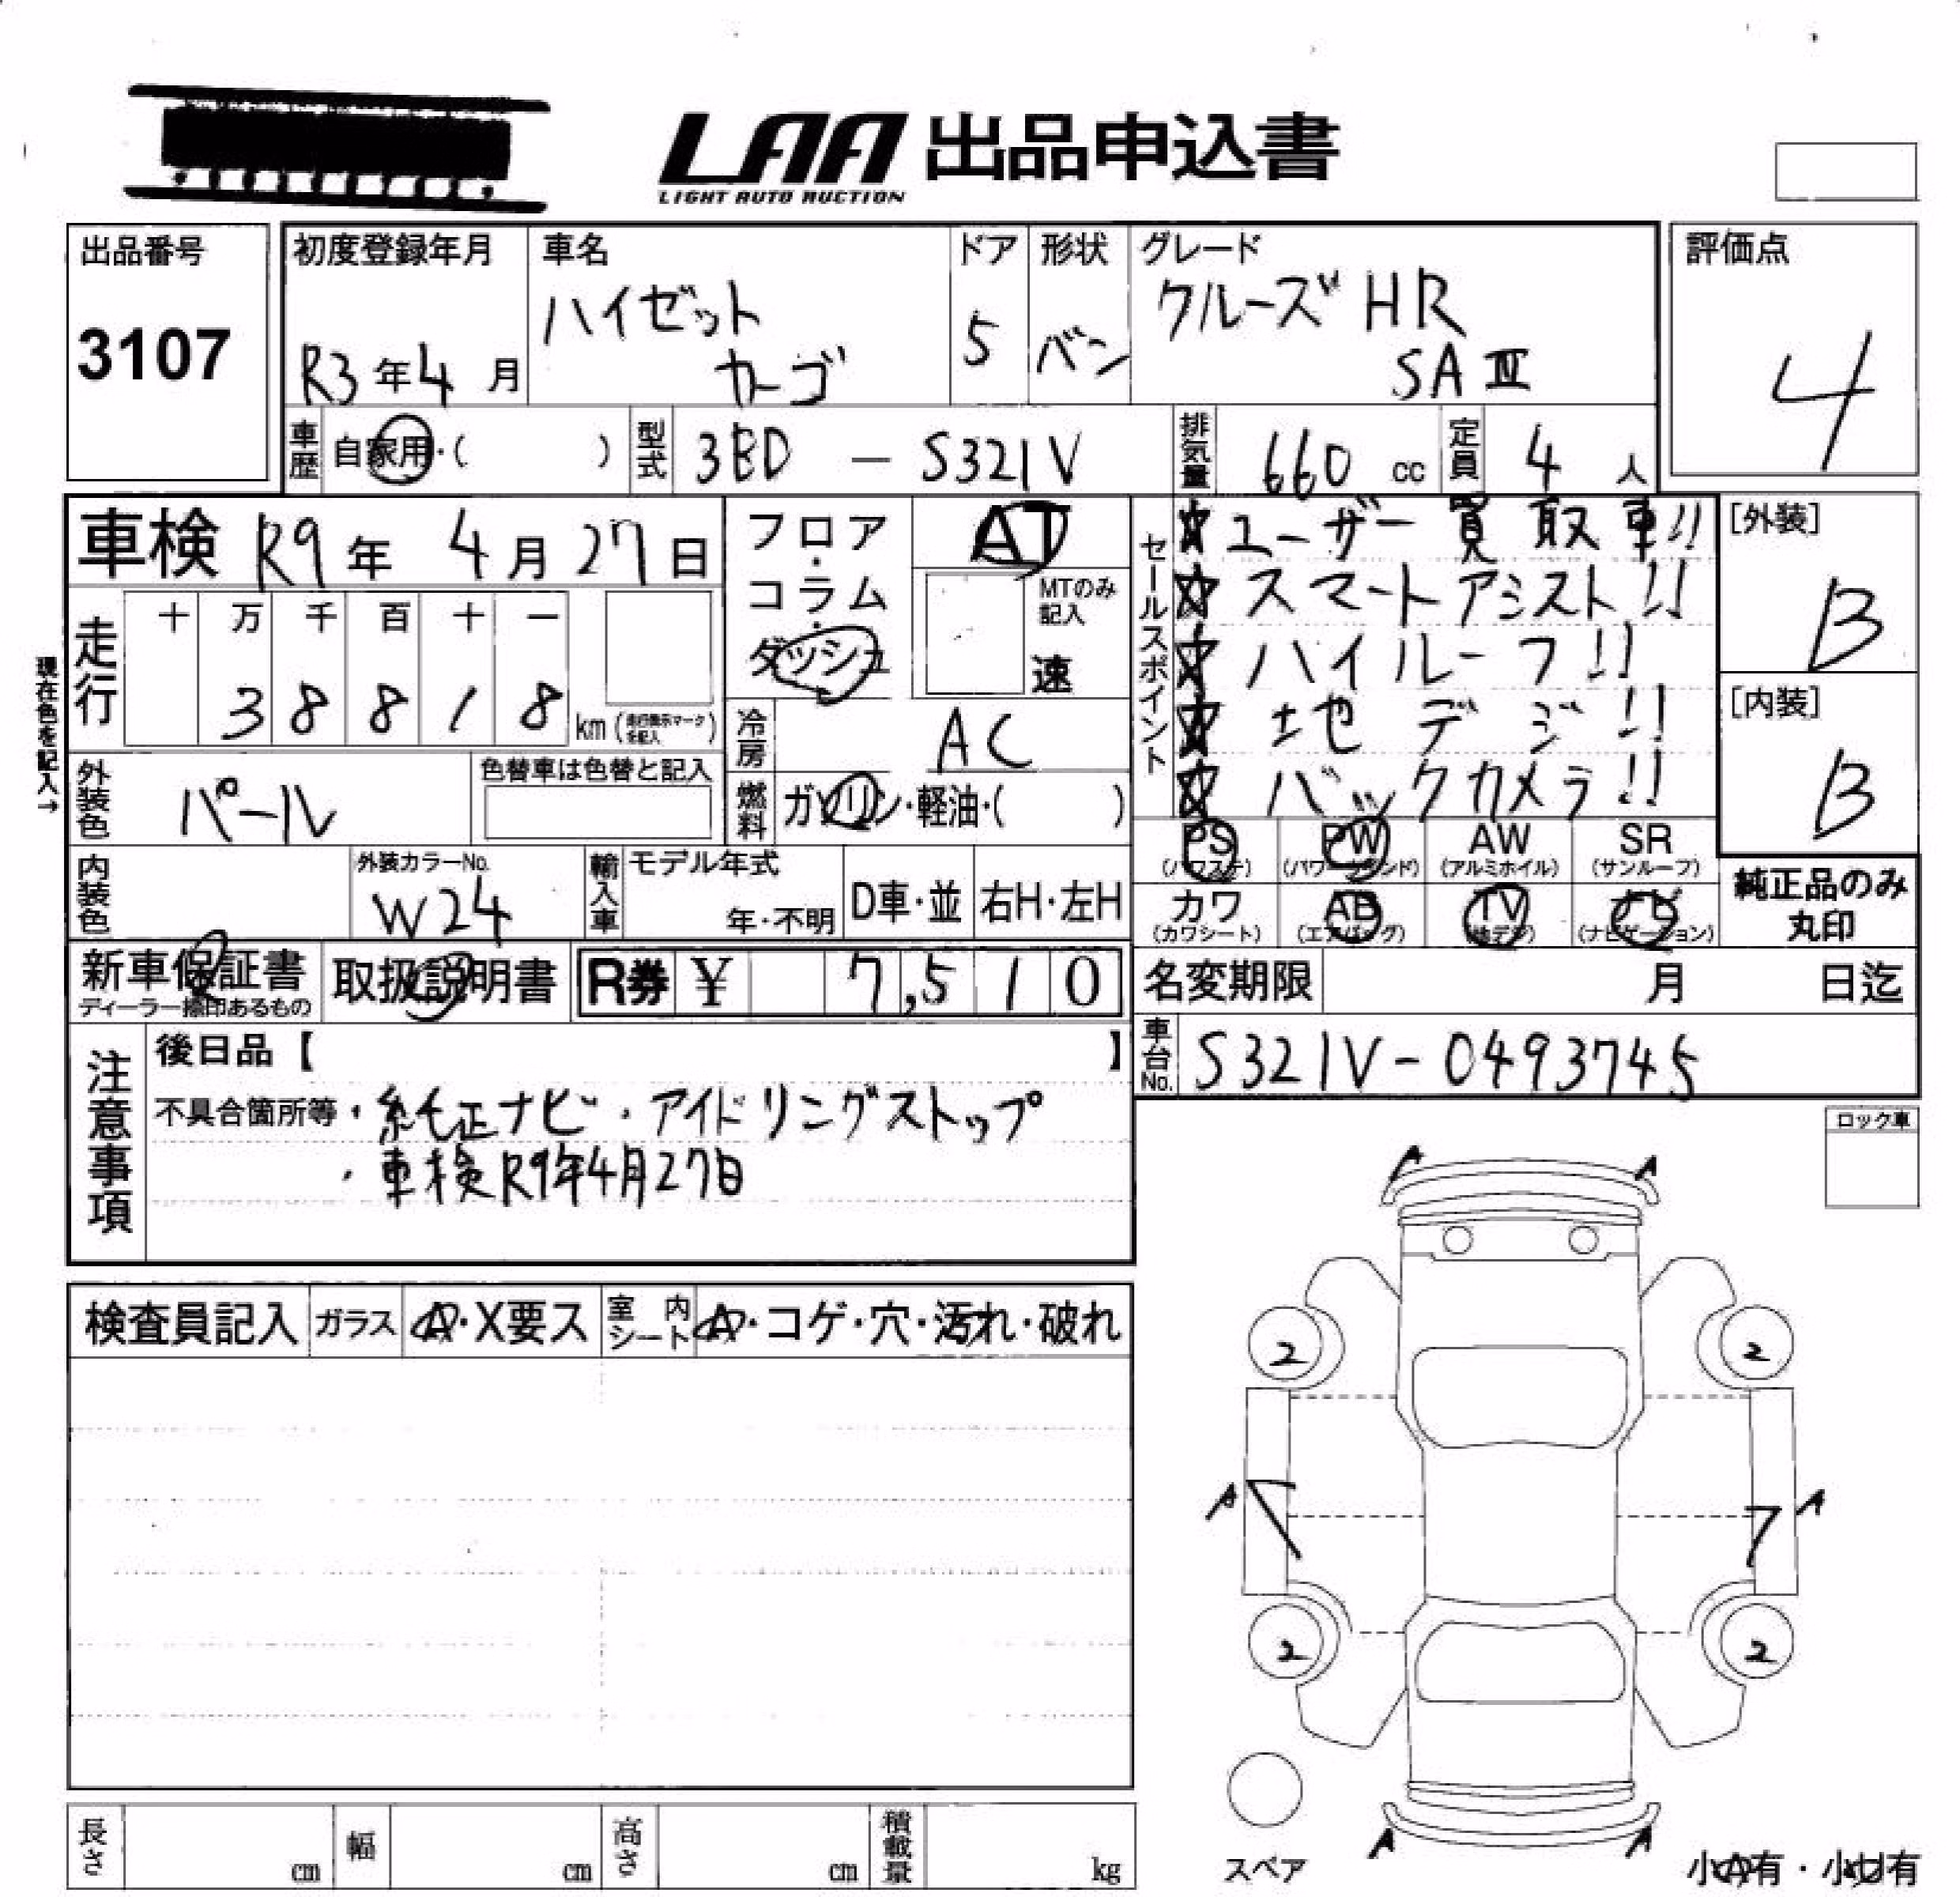 LAA 出品申込書
LIGHT AUTO AUCTION
出品番号
3107
初度登録年月
R3年4月
車名
ハイゼット
カーゴ
ドア
5
形状
バン
グレード
クルーズ HR
SAⅢ
評価点
4
車歴
自家用・( )
型式
3BD - S321V
排気量
660 cc
定員
4 人
車検 R9年 4月 27日
フロア・コラム・ダッシュ
AT
MTのみ記入
速
セールスポイント
☆ユーザー買取車!!
☆スマートアシスト!!
☆ハイルーフ!!
☆地デジ!!
☆バックカメラ!!
[外装]
B
[内装]
B
現在色を記入→
走行
十 万 千 百 十 一
3 8 8 1 8 km (走行表示マークを記入)
冷房
AC
外装色
パール
色替車は色替と記入
燃料
ガソリン・軽油・( )
PS (パワステ)
PW (パワーウィンド)
AW (アルミホイル)
SR (サンルーフ)
カワ (カワシート)
AB (エアバッグ)
TV (地デジ)
ナビ (ナビゲーション)
純正品のみ
丸印
内装色
外装カラーNo.
W24
輸入車
モデル年式
年・不明
D車・並
右H・左H
新車保証書
ディーラー捺印あるもの
取扱説明書
R券 ¥ 7,510
名変期限 月 日迄
車台No.
S321V-0493745
注意事項
後日品【 】
不具合箇所等・純正ナビ・アイドリングストップ
・車検R9年4月27日
ロック車
検査員記入
ガラス
A・X要ス
室内シート
A・コゲ・穴・汚れ・破れ
A A
2 2
A A
2 2
A A
スペア
小A有・小U有
長さ cm
幅 cm
高さ cm
積載量 kg